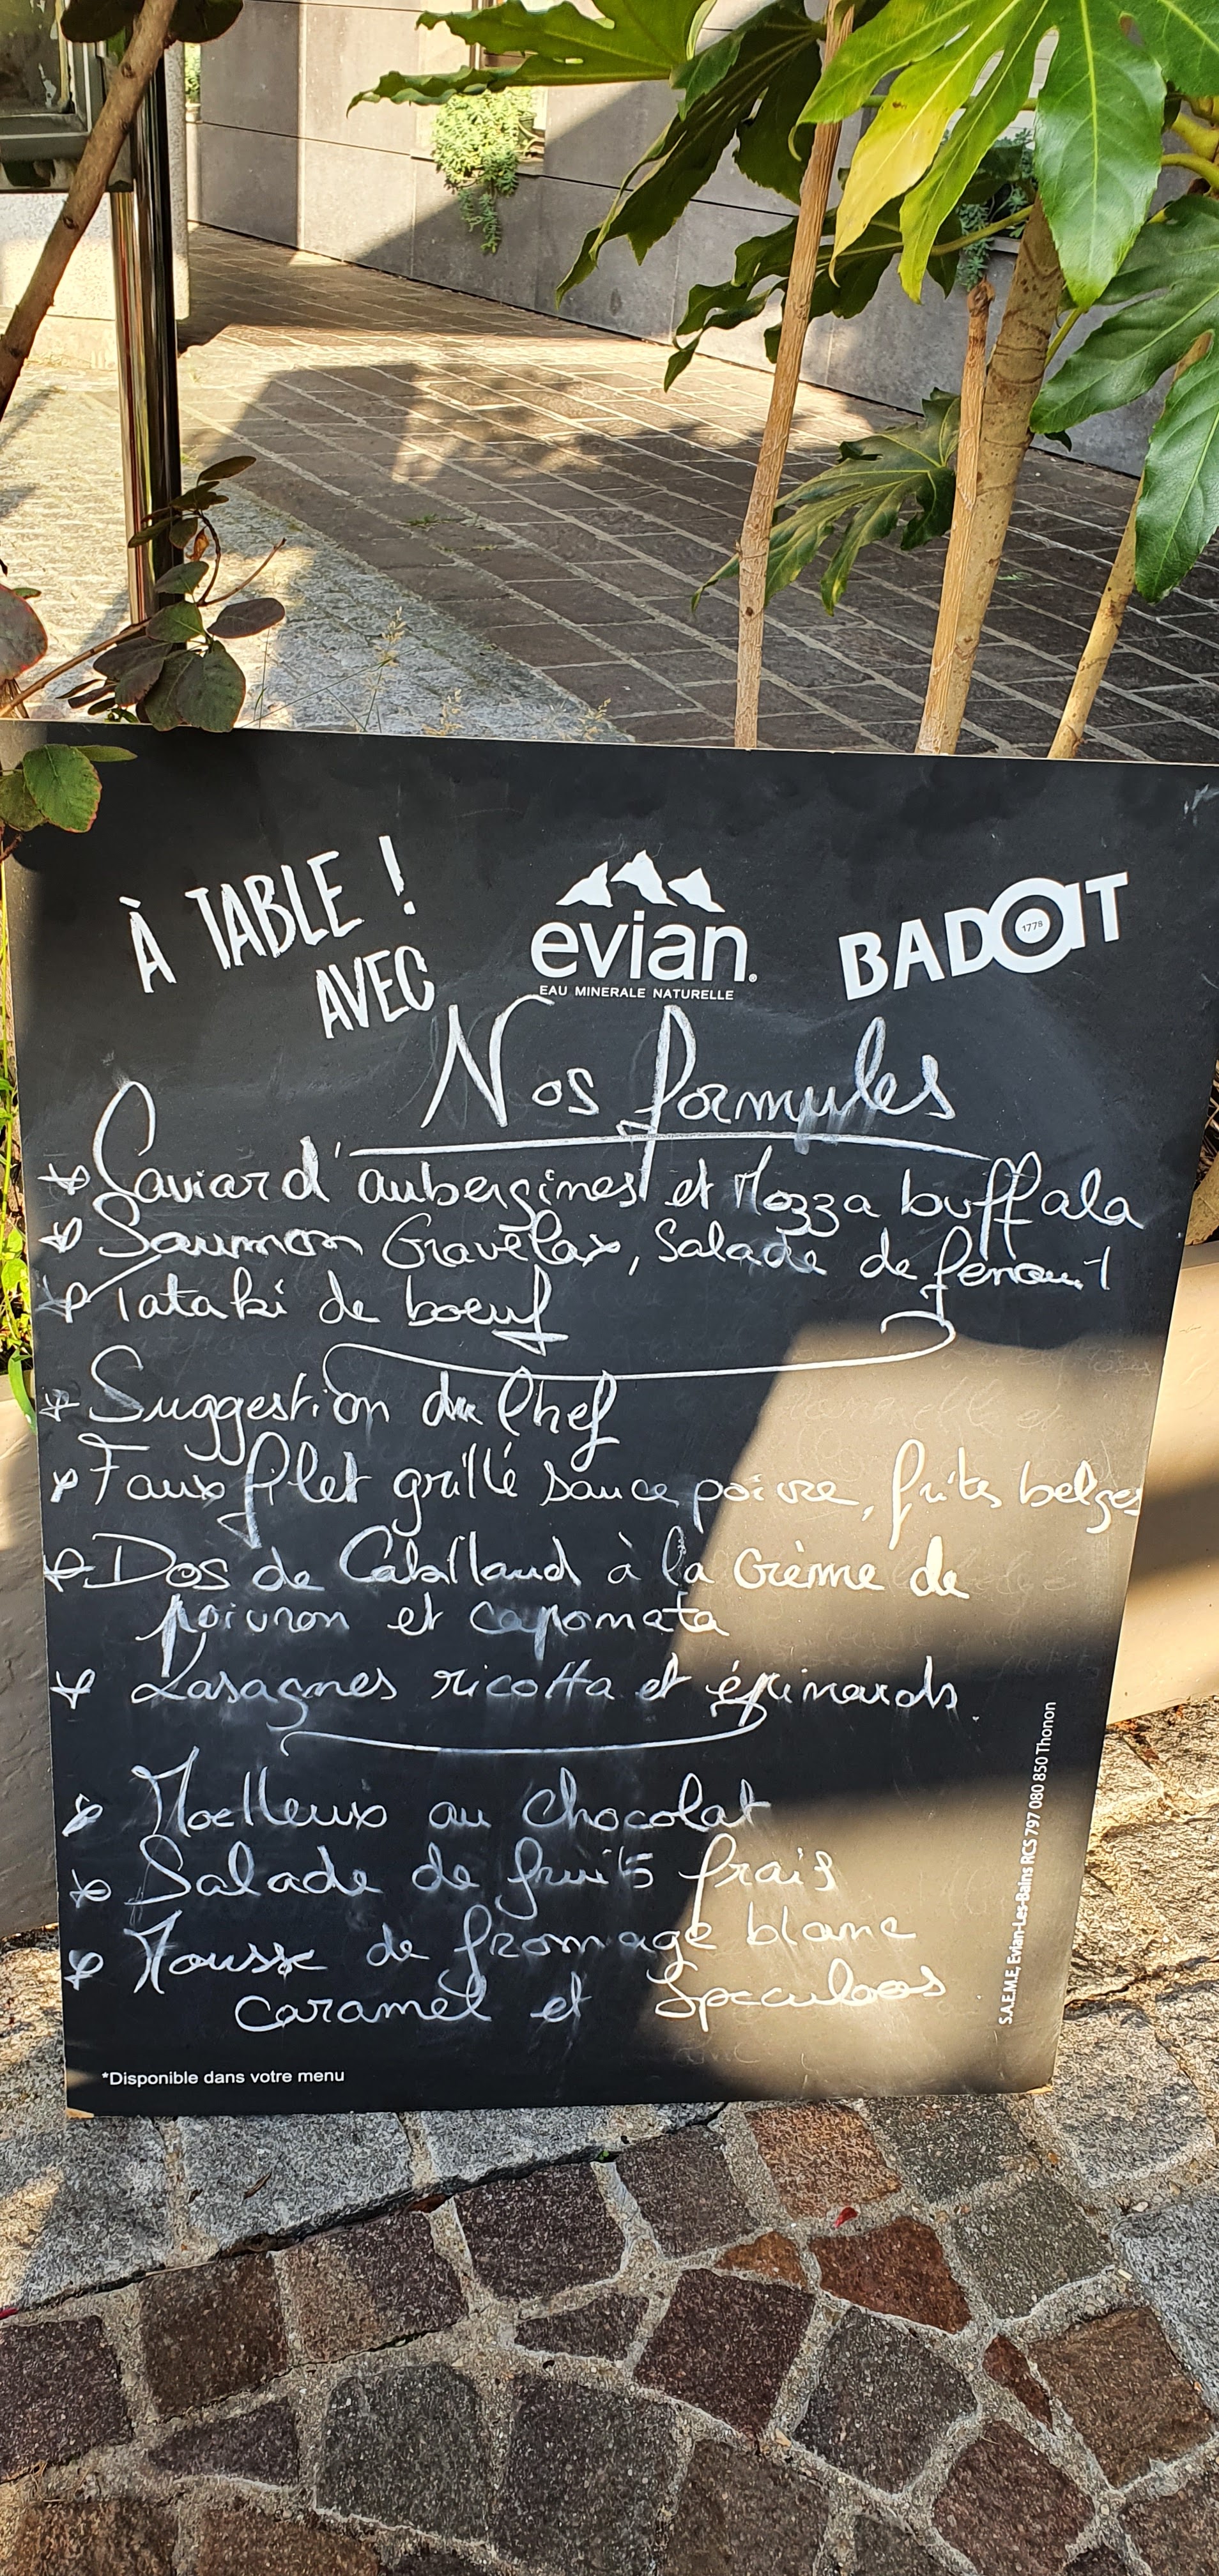 À TABLE !
AVEC
evian.®
EAU MINERALE NATURELLE
BADOIT
1778
Nos formules
Caviar d'aubergines et Mozza buffala
Saumon Gravelax, Salade de fenouil
Tataki de boeuf
Suggestion du Chef
Faux filet grillé sauce poivre, frites belges
Dos de Cabillaud à la Crème de
poivron et caponata
Lasagnes ricotta et épinards
Moelleux au chocolat
Salade de fruits frais
Mousse de fromage blanc
caramel et Speculoos
*Disponible dans votre menu
S.A.E.M.E, Evian-Les-Bains RCS 797 080 850 Thonon